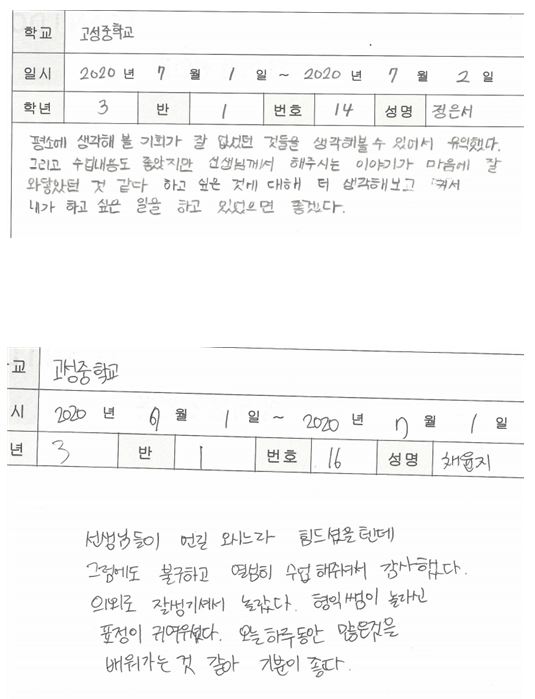 학교 고성중학교
일시 2020 년 7 월 1 일 ~ 2020 년 7 월 2 일
학년 3 반 1 번호 14 성명 정은서
평소에 생각해 볼 기회가 잘 없었던 것들을 생각해볼 수 있어서 유익했다.
그리고 수업내용도 좋았지만 선생님께서 해주시는 이야기가 마음에 잘
와닿았던 것 같다 하고 싶은 것에 대해 더 생각해보고 커서
내가 하고 싶은 일을 하고 있었으면 좋겠다.
교 고성중학교
시 2020 년 월 1 일 ~ 2020 년 7 월 1 일
년 3 반 1 번호 16 성명 채윤지
선생님들이 먼길 오시느라 힘드셨을텐데
그럼에도 불구하고 열심히 수업 해주셔서 감사했다.
의외로 잘생기셔서 놀랐다. 형익쌤이 놀라신
표정이 귀여우셨다. 오늘 하루동안 많은것을
배워가는 것 같아 기분이 좋다.